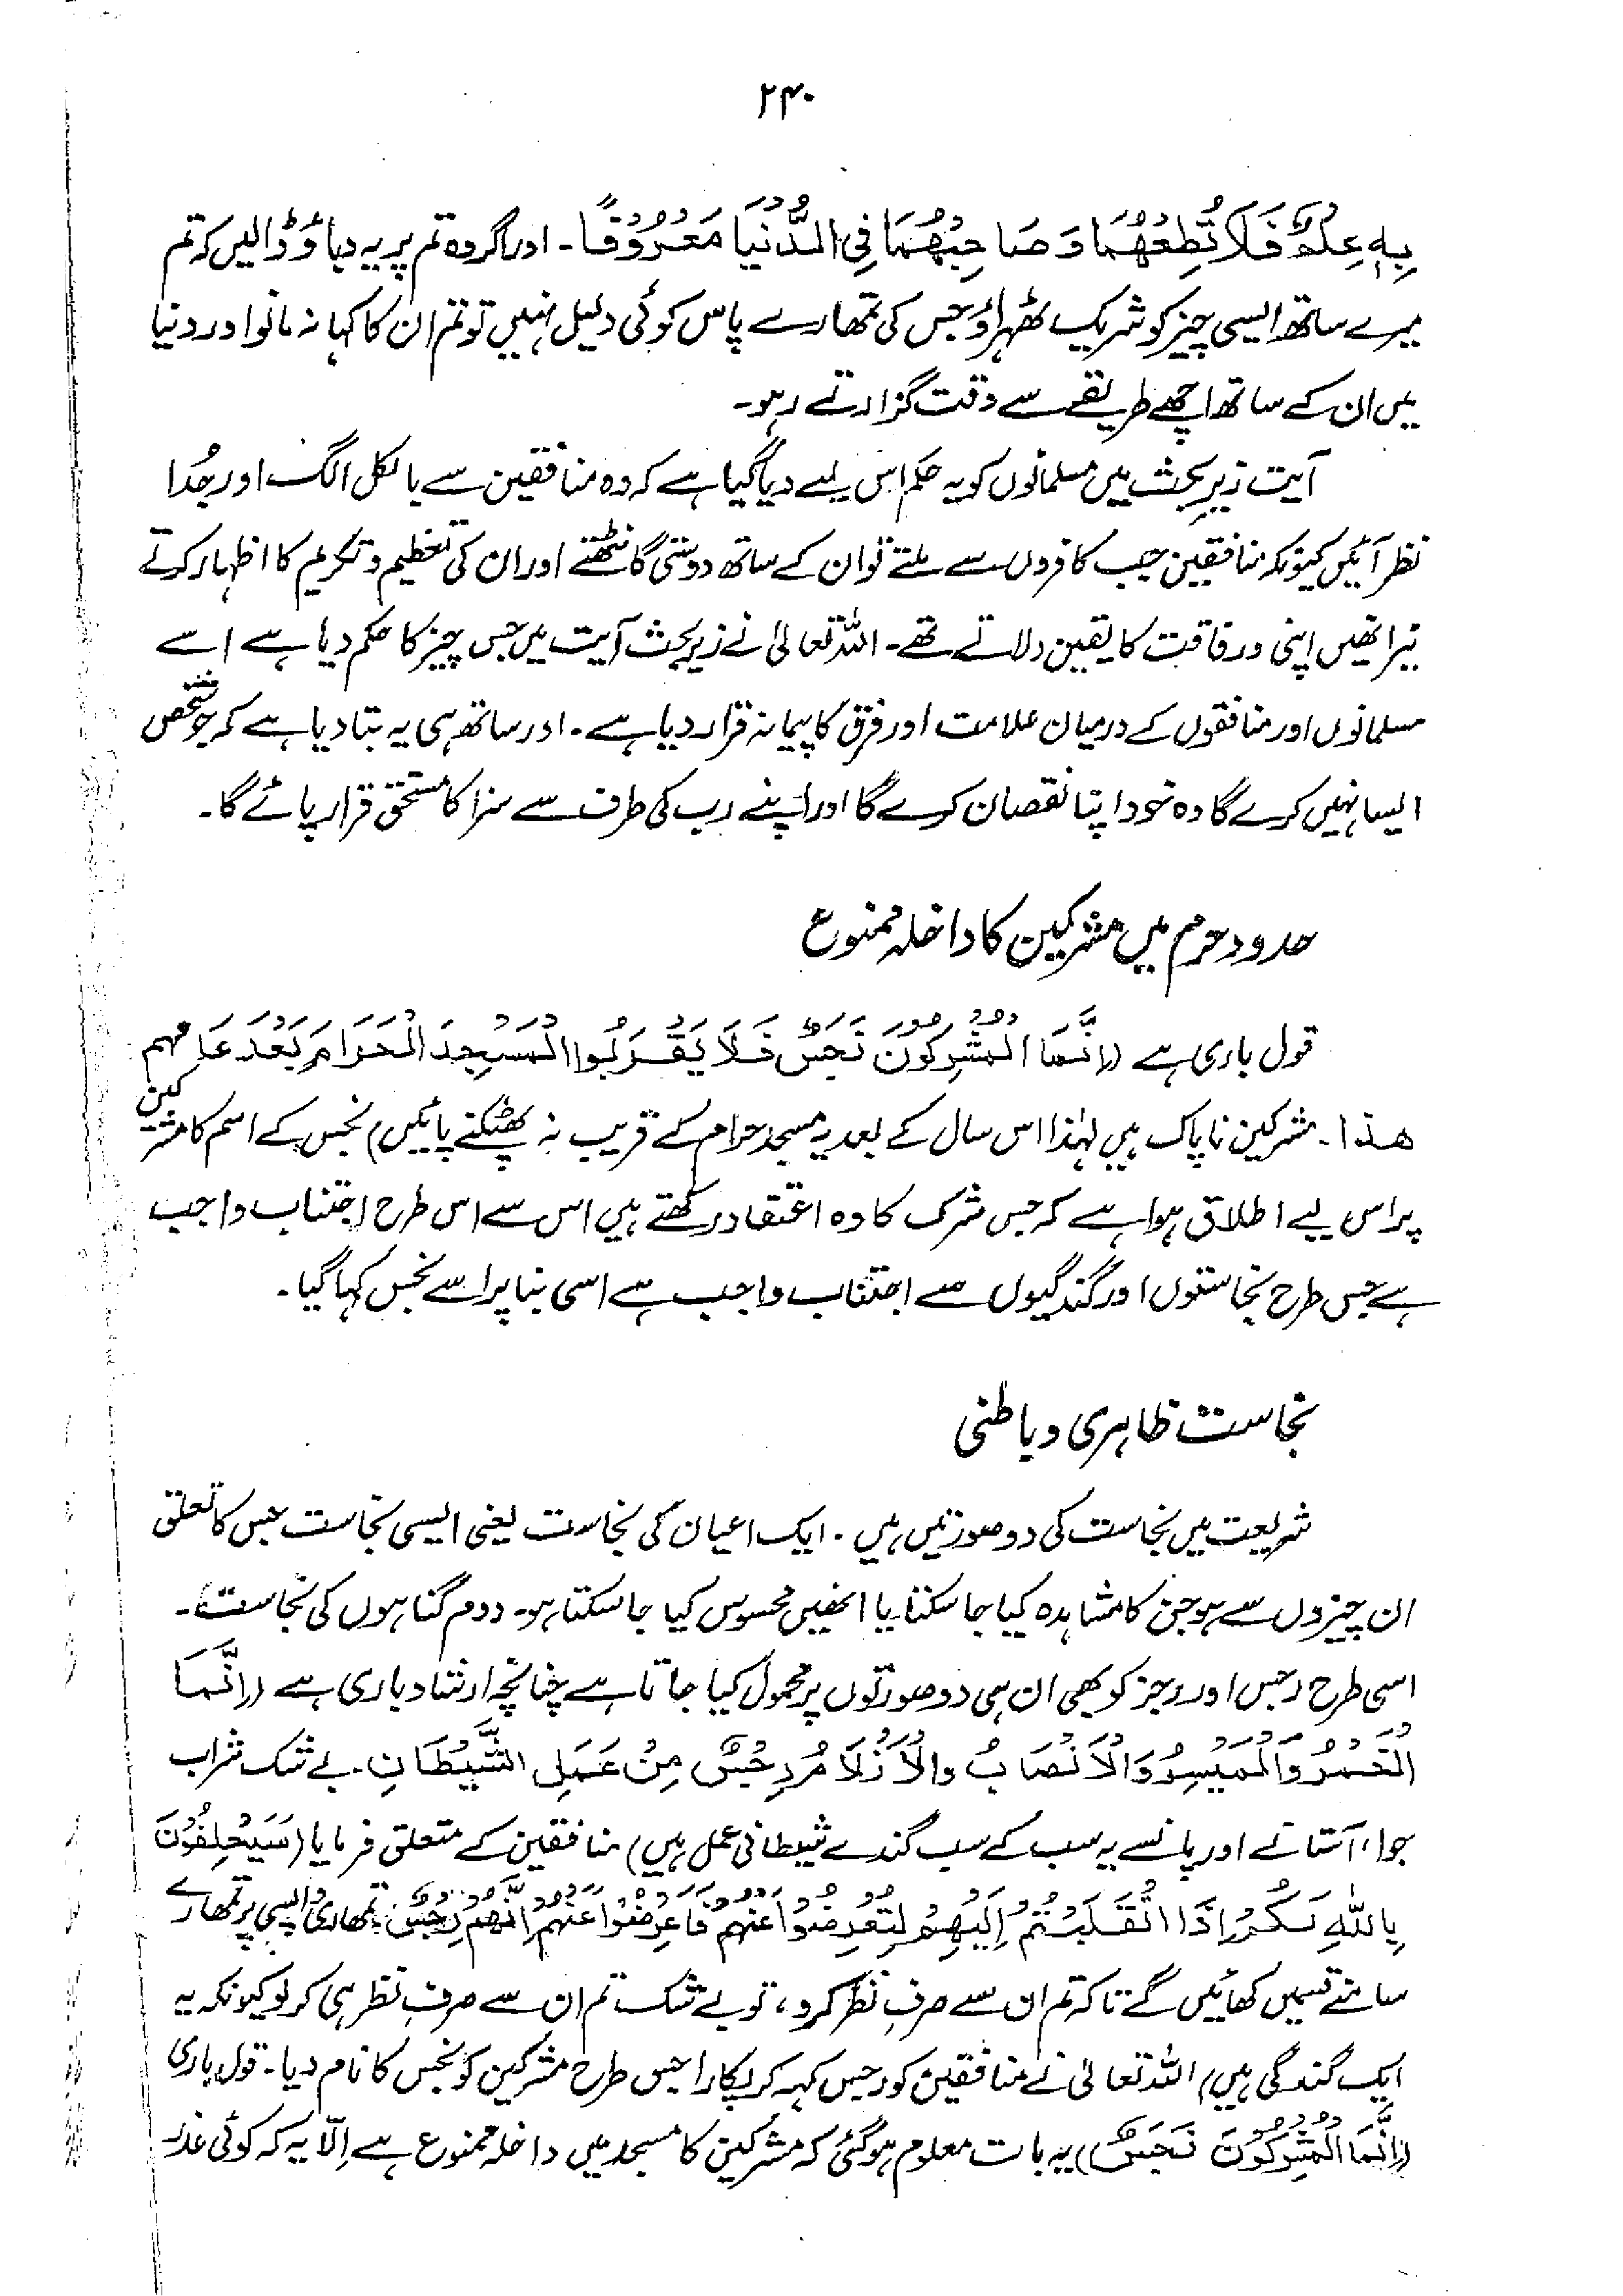 ۲۴۰
بِهٖ عِلْمٌ فَلَا تُطِعْهُمَا وَصَاحِبْهُمَا فِی الدُّنْیَا مَعْرُوْفًا۔ اور اگر وہ تم پر یہ دباؤ ڈالیں کہ تم
میرے ساتھ ایسی چیز کو شریک ٹھہراؤ جس کی تمھارے پاس کوئی دلیل نہیں تو تم ان کا کہا نہ مانو اور دنیا
میں ان کے ساتھ اچھے طریقے سے وقت گزارتے رہو۔
آیت زیرِ بحث میں مسلمانوں کو یہ حکم اس لیے دیا گیا ہے کہ وہ منافقین سے بالکل الگ اور جُدا
نظر آئیں کیونکہ منافقین جب کافروں سے ملتے تو ان کے ساتھ دوستی گانٹھتے اور ان کی تعظیم و تکریم کا اظہار کرتے
نیز انھیں اپنی ورفاقت کا یقین دلاتے تھے۔ اللہ تعالیٰ نے زیر بحث آیت میں جس چیز کا حکم دیا ہے اسے
مسلمانوں اور منافقوں کے درمیان علامت اور فرق کا پیمانہ قرار دیا ہے۔ اور ساتھ ہی یہ بتا دیا ہے کہ جو شخص
ایسا نہیں کرے گا وہ خود اپنا نقصان کرے گا اور اپنے رب کی طرف سے سزا کا مستحق قرار پائے گا۔
حدود حرم میں مشرکین کا داخلہ ممنوع
قول باری ہے ((اِنَّمَا الْمُشْرِکُوْنَ نَجَسٌ فَلَا یَقْرَبُوا الْمَسْجِدَ الْحَرَامَ بَعْدَ عَامِهِم
هٰذا۔ مشرکین ناپاک ہیں لہٰذا اس سال کے بعد یہ مسجد حرام کے قریب نہ پھٹکنے پائیں) نجس کے اسم کا مشرکین
پر اس لیے اطلاق ہوا ہے کہ جس شرک کا وہ اعتقاد رکھتے ہیں اس سے اس طرح اجتناب واجب
ہے جس طرح نجاستوں اور گندگیوں سے اجتناب واجب ہے اسی بنا پر اسے نجس کہا گیا۔
نجاست ظاہری و باطنی
شریعت میں نجاست کی دو صورتیں ہیں۔ ایک اعیان کی نجاست یعنی ایسی نجاست جس کا تعلق
ان چیزوں سے ہو جن کا مشاہدہ کیا جا سکتا یا انھیں محسوس کیا جا سکتا ہو۔ دوم گناہوں کی نجاست۔
اسی طرح رجس اور رجز کو بھی ان ہی دو صورتوں پر محمول کیا جاتا ہے چنانچہ ارشاد باری ہے ((اِنَّمَا
الْخَمْرُ وَالْمَیْسِرُ وَالْاَنْصَابُ والْاَزْلَامُ رِجْسٌ مِنْ عَمَلِ الشَّیْطَانِ۔ بے شک شراب
جوا، آستانے اور پانسے یہ سب کے سب گندے شیطانی عمل ہیں) منافقین کے متعلق فرمایا (سَیَحْلِفُوْنَ
بِاللّٰهِ لَکُمْ اِذَا انْقَلَبْتُمْ اِلَیْهِمْ لِتُعْرِضُوْا عَنْهُمْ فَاَعْرِضُوْا عَنْهُمْ اِنَّهُمْ رِجْسٌ۔ تمھاری واپسی پر تمھارے
سامنے قسمیں کھائیں گے تاکہ تم ان سے صرفِ نظر کرو، تو بے شک تم ان سے صرفِ نظر ہی کر لو کیونکہ یہ
ایک گندگی ہیں) اللہ تعالیٰ نے منافقین کو رجس کہہ کر پکارا جس طرح مشرکین کو نجس کا نام دیا۔ قول باری
((اِنَّمَا الْمُشْرِکُوْنَ نَجَسٌ)) یہ بات معلوم ہو گئی کہ مشرکین کا مسجد میں داخلہ ممنوع ہے اِلّا یہ کہ کوئی عذر